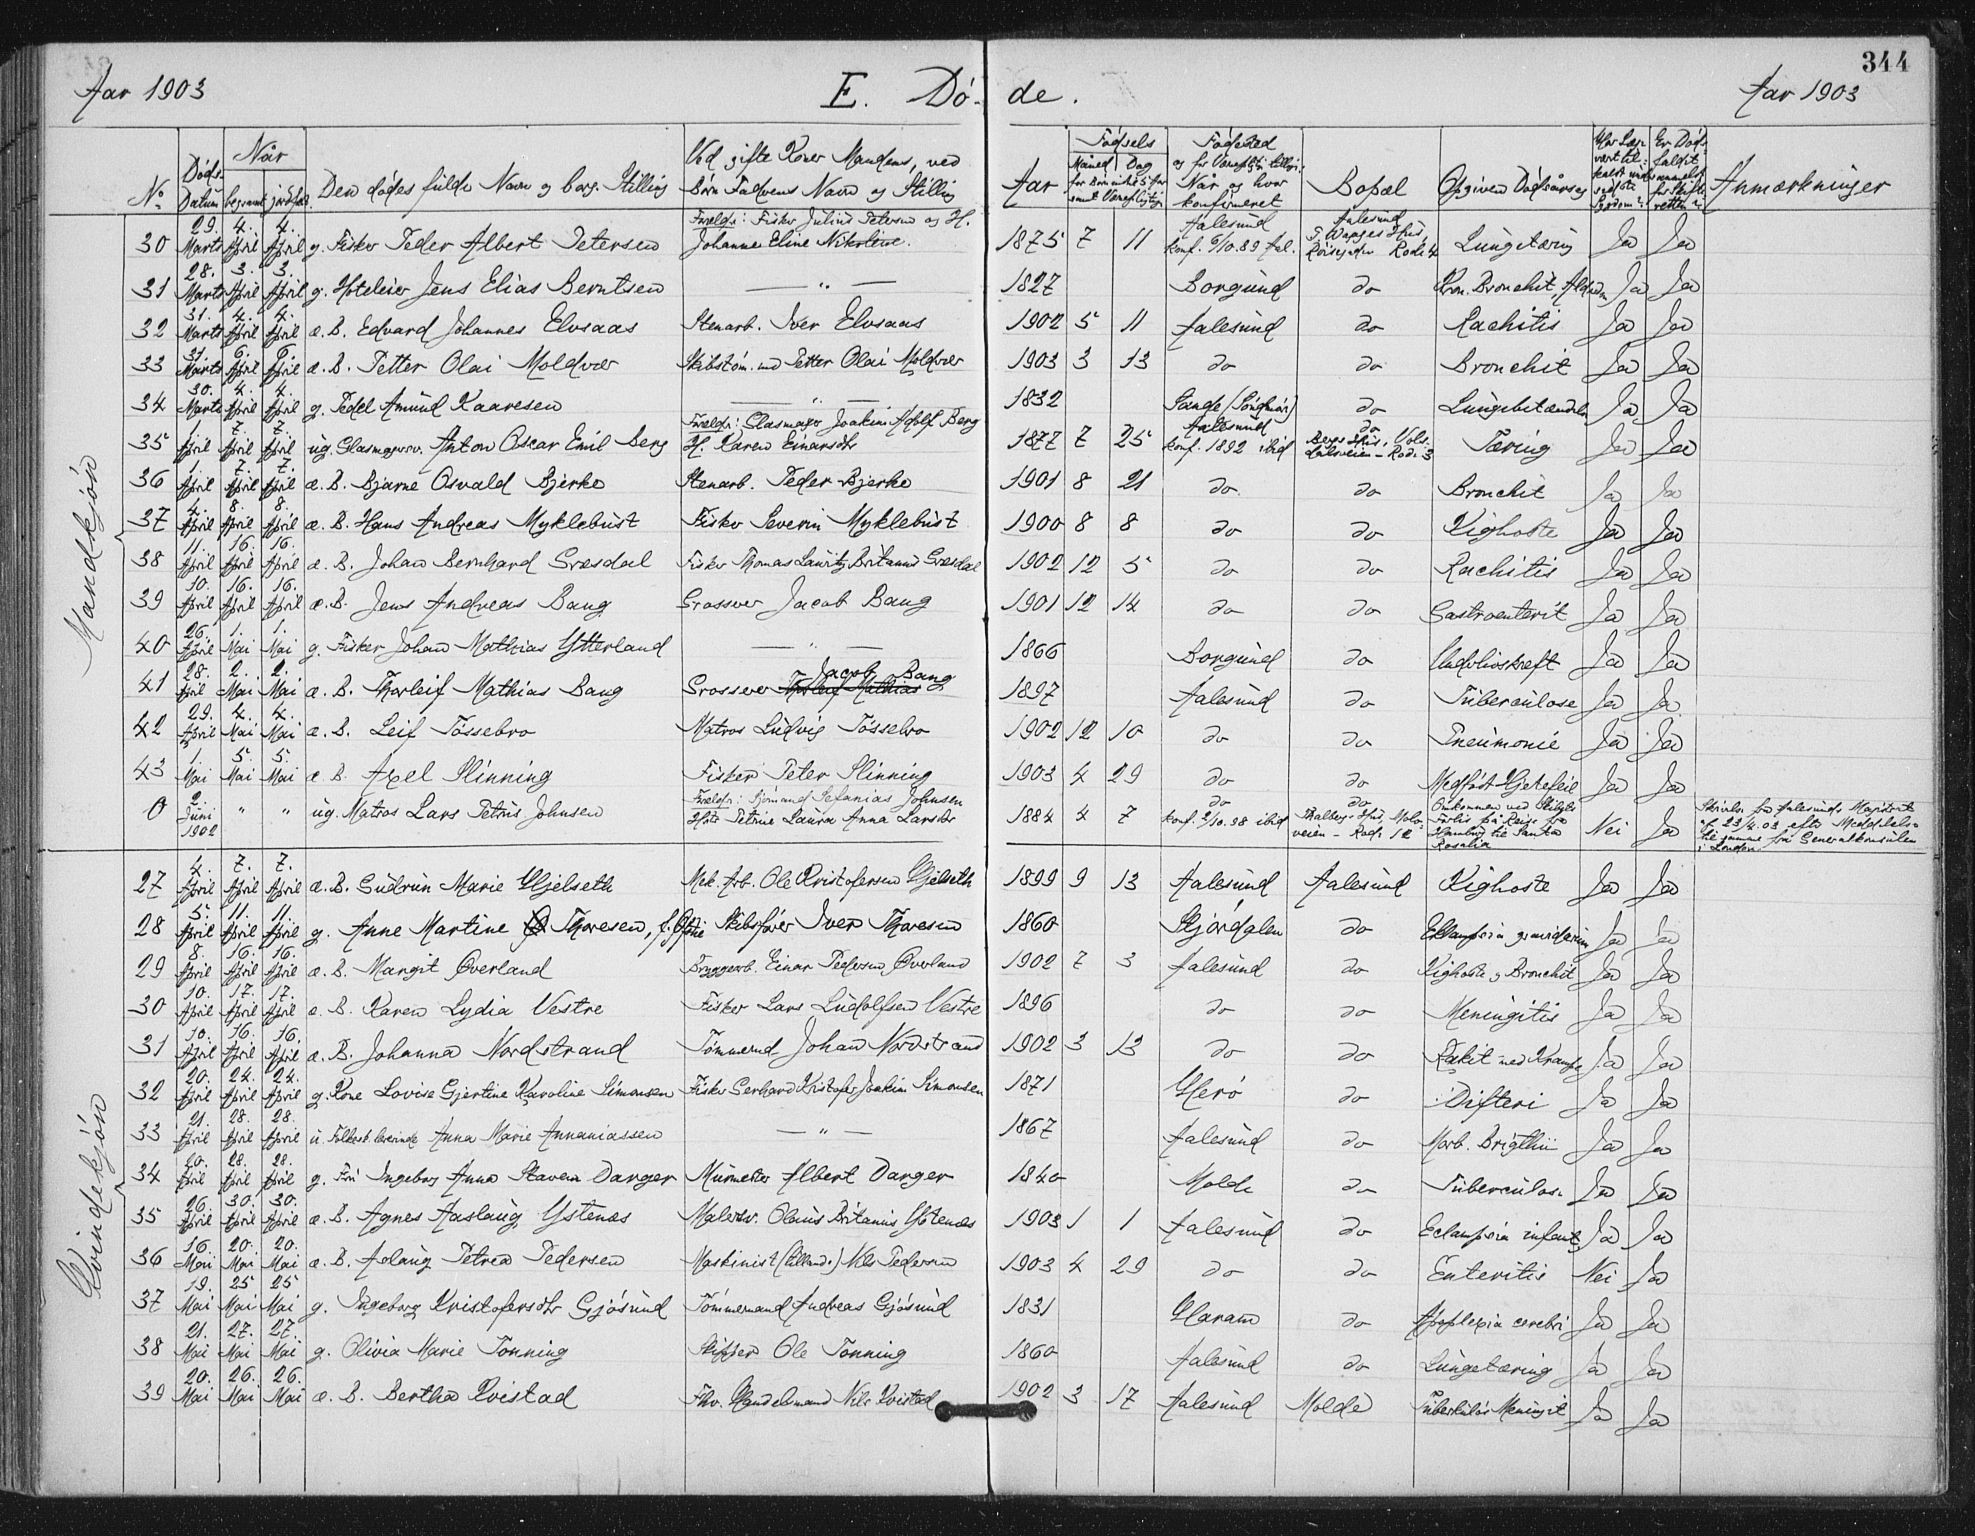 344
Aar 1903 E. Dö- de. Aar 1903
No Døds- Datum Når begravet jordfæst Den dødes fulde Navn og borg. Stilling Ved gifte Koner Mandens, ved Børn Faderens Navn og Stilling Aar Fødsels Måned Dag Fødested Når og hvor konfirmeret Bopæl Opgiven Dødsårsag Anmærkninger
Mandkjön
30 29. Marts 4. April 4. April g. Fisker Peder Albert Petersen Forældr: Fisker Julius Petersen og H. Johanne Eline Nikoline. 1875 7 11 Aalesund konf. 6/10.89 Aal. Aalesund Rode 4 Lungetæring Ja Ja
31 28. Marts 3. April 3. April g. Hoteleier Jens Elias Berntsen — " — 1827 Borgund do Kron. Bronchit, Alderdom Ja Ja
32 31. Marts 4. April 4. April æ. B. Edvard Johannes Elvsaas Stenarb. Iver Elvsaas 1902 5 11 Aalesund do Rachitis Ja Ja
33 31. Marts 6. April 6. April æ. B. Petter Olai Moldvær Skibstöm.md Petter Olai Moldvær 1903 3 13 do do Bronchit Ja Ja
34 30. Marts 4. April 4. April g. Pedel Amund Kaaresen — " — 1832 Gande (Söndmör) do Lungebetændelse Ja Ja
35 1. April 7. April 7. April ug. Glasmagersv. Anton Oscar Emil Berg Forældr: Glasmager Joakim Adolf Berg H. Karen Einarsdtr 1877 7 25 Aalesund konf. 1892 ibid do Bergs Hus, Volsdalsveien - Rode 3 Tæring Ja Ja
36 1. April 7. April 7. April æ. B. Bjarne Osvald Bjerke Stenarb. Peder Bjerke 1901 8 21 do. do Bronchit Ja Ja
37 4. April 8. April 8. April æ. B. Hans Andreas Myklebust Fisker Severin Myklebust 1900 8 8 do do Kighoste Ja Ja
38 11. April 16. April 16. April æ. B. Johan Bernhard Græsdal Fisker Thomas Lauritz Britanus Græsdal 1902 12 5 do do Rachitis Ja Ja
39 10. April 16. April 16. April æ. B. Jens Andreas Bang Grosserer Jacob Bang 1901 12 14 do do Gastroenterit Ja Ja
40 26. April 1. Mai 1. Mai g. Fisker Johan Mathias Ytterland — " — 1866 Borgund do Underlivskreft Ja Ja
41 28. April 2. Mai 2. Mai æ. B. Thorleif Mathias Bang Grosserer Thorleif Mathias Jacob Bang 1897 Aalesund do Tuberculose Ja Ja
42 29. April 4. Mai 4. Mai æ. B. Leif Tössebro Matros Ludvig Tössebro 1902 12 10 do do Pneumonie Ja Ja
43 1. Mai 5. Mai 5. Mai æ. B. Axel Slinning Fisker Peter Slinning 1903 4 29 do do Medfödt Hjertefeil Ja Ja
0 2. Juni 1902 " " ug. Matros Lars Petrus Johnsen Forældr: Sjömand Sefanias Johnsen Hst. Petrine Laura Anna Larsdtr 1884 4 7 do konf. 2/10.98 ibid do Thalbergs Hus, Moloveien - Rode 12 Omkommen ved Skibets Forlis på Reise fra Hamburg til Santa Rosalia Nei Ja Skrivelse fra Aalesunds Magistrat af 23/4.03 efter Meddelelse til samme fra Generalkonsulen i London
Qvindekjön
27 4. April 7. April 7. April æ. B. Gudrun Marie Hjelseth Mek. Arb. Ole Kristofersen Hjelseth 1899 9 13 Aalesund Aalesund Kighoste Ja Ja
28 5. April 11. April 11. April g. Anne Martine Thoresen, Skibsförer Iver Thoresen 1860 Stjørdalen do Eklampsia gravidarum Ja Ja
29 8. April 16. April 16. April æ. B. Margit Överland Bryggearb. Einar Pedersen Överland 1902 7 3 Aalesund do Kighoste og Bronchit Ja Ja
30 10. April 17. April 17. April æ. B. Karen Lydia Vestre Fisker Lars Ludolfsen Vestre 1896 do do Meningitis Ja Ja
31 10. April 16. April 16. April æ. B. Johanna Nordstrand Tömmermd. Johan Nordstrand 1902 3 13 do do Rakit med Krampe Ja Ja
32 20. April 24. April 24. April g. Kone Lovise Gjertine Karoline Simonsen Fisker Gerhard Kristofer Joakim Simonsen 1871 Herö do Difteri Ja Ja
33 21. April 28. April 28. April u. Folkesk.lærerinde Anna Marie Annaniassen — " — 1867 Aalesund do Morb. Brigthii Ja Ja
34 20. April 28. April 28. April g. Fru Ingeborg Anna Staven Danger Murmester Albert Danger 1840 Molde do Tuberculose Ja Ja
35 26. April 30. April 30. April æ. B. Agnes Aaslaug Ystenæs Malersv. Olaus Britanus Ystenæs 1903 1 1 Aalesund do Eclampsia infant. Ja Ja
36 16. Mai 20. Mai 20. Mai æ. B. Aslaug Petrea Pedersen Maskinist Nils Pedersen 1903 4 29 do do Enteritis Nei Ja
37 19. Mai 25 Mai 25 Mai g. Ingeborg Kristofersdtr Gjösund Tömmermand Andreas Gjösund 1831 Haram do Apoplexia cerebri Ja Ja
38 21. Mai 27. Mai 27. Mai g. Olivia Marie Tönning Skipper Ole Tönning 1860 Aalesund do Lungetæring Ja Ja
39 20. Mai 26. Mai 26. Mai æ. B. Bertha Kvistad Fhv. Handelsmand Nils Kvistad 1902 3 17 Aalesund Molde Tuberkulös Meningit Ja Ja